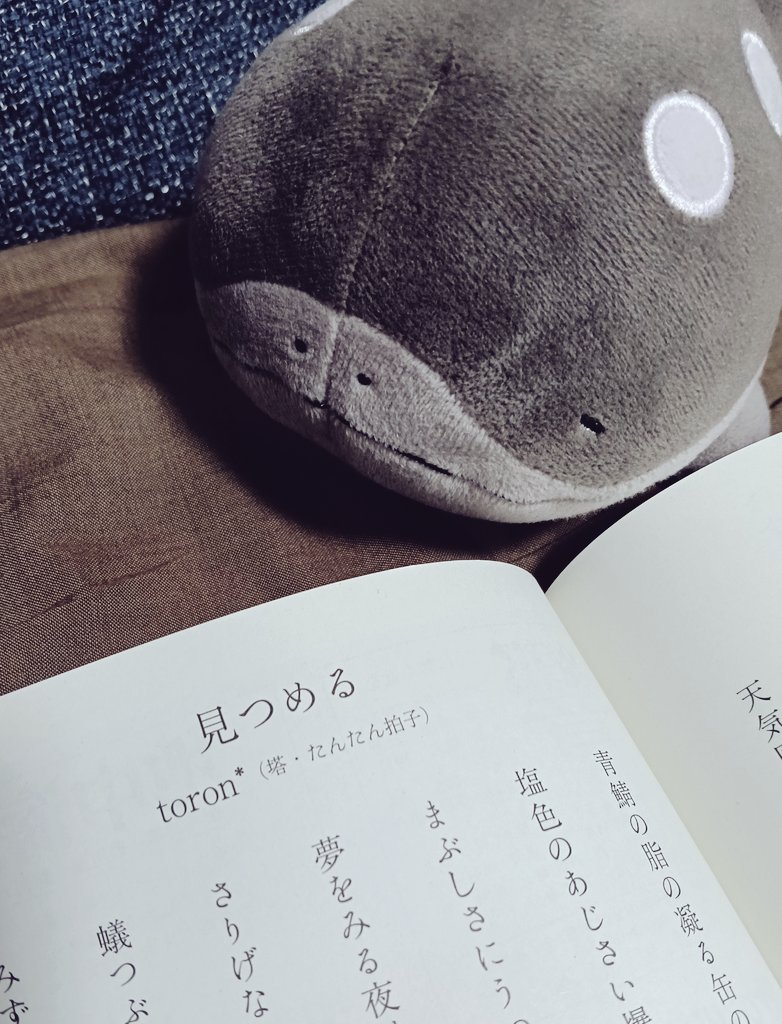 天気
見つめる
toron*（塔・たんたん拍子）
青鯖の脂の凝る缶の
塩色のあじさい
まぶしさにう
夢をみる夜
さりげな
蟻つぶ
みず